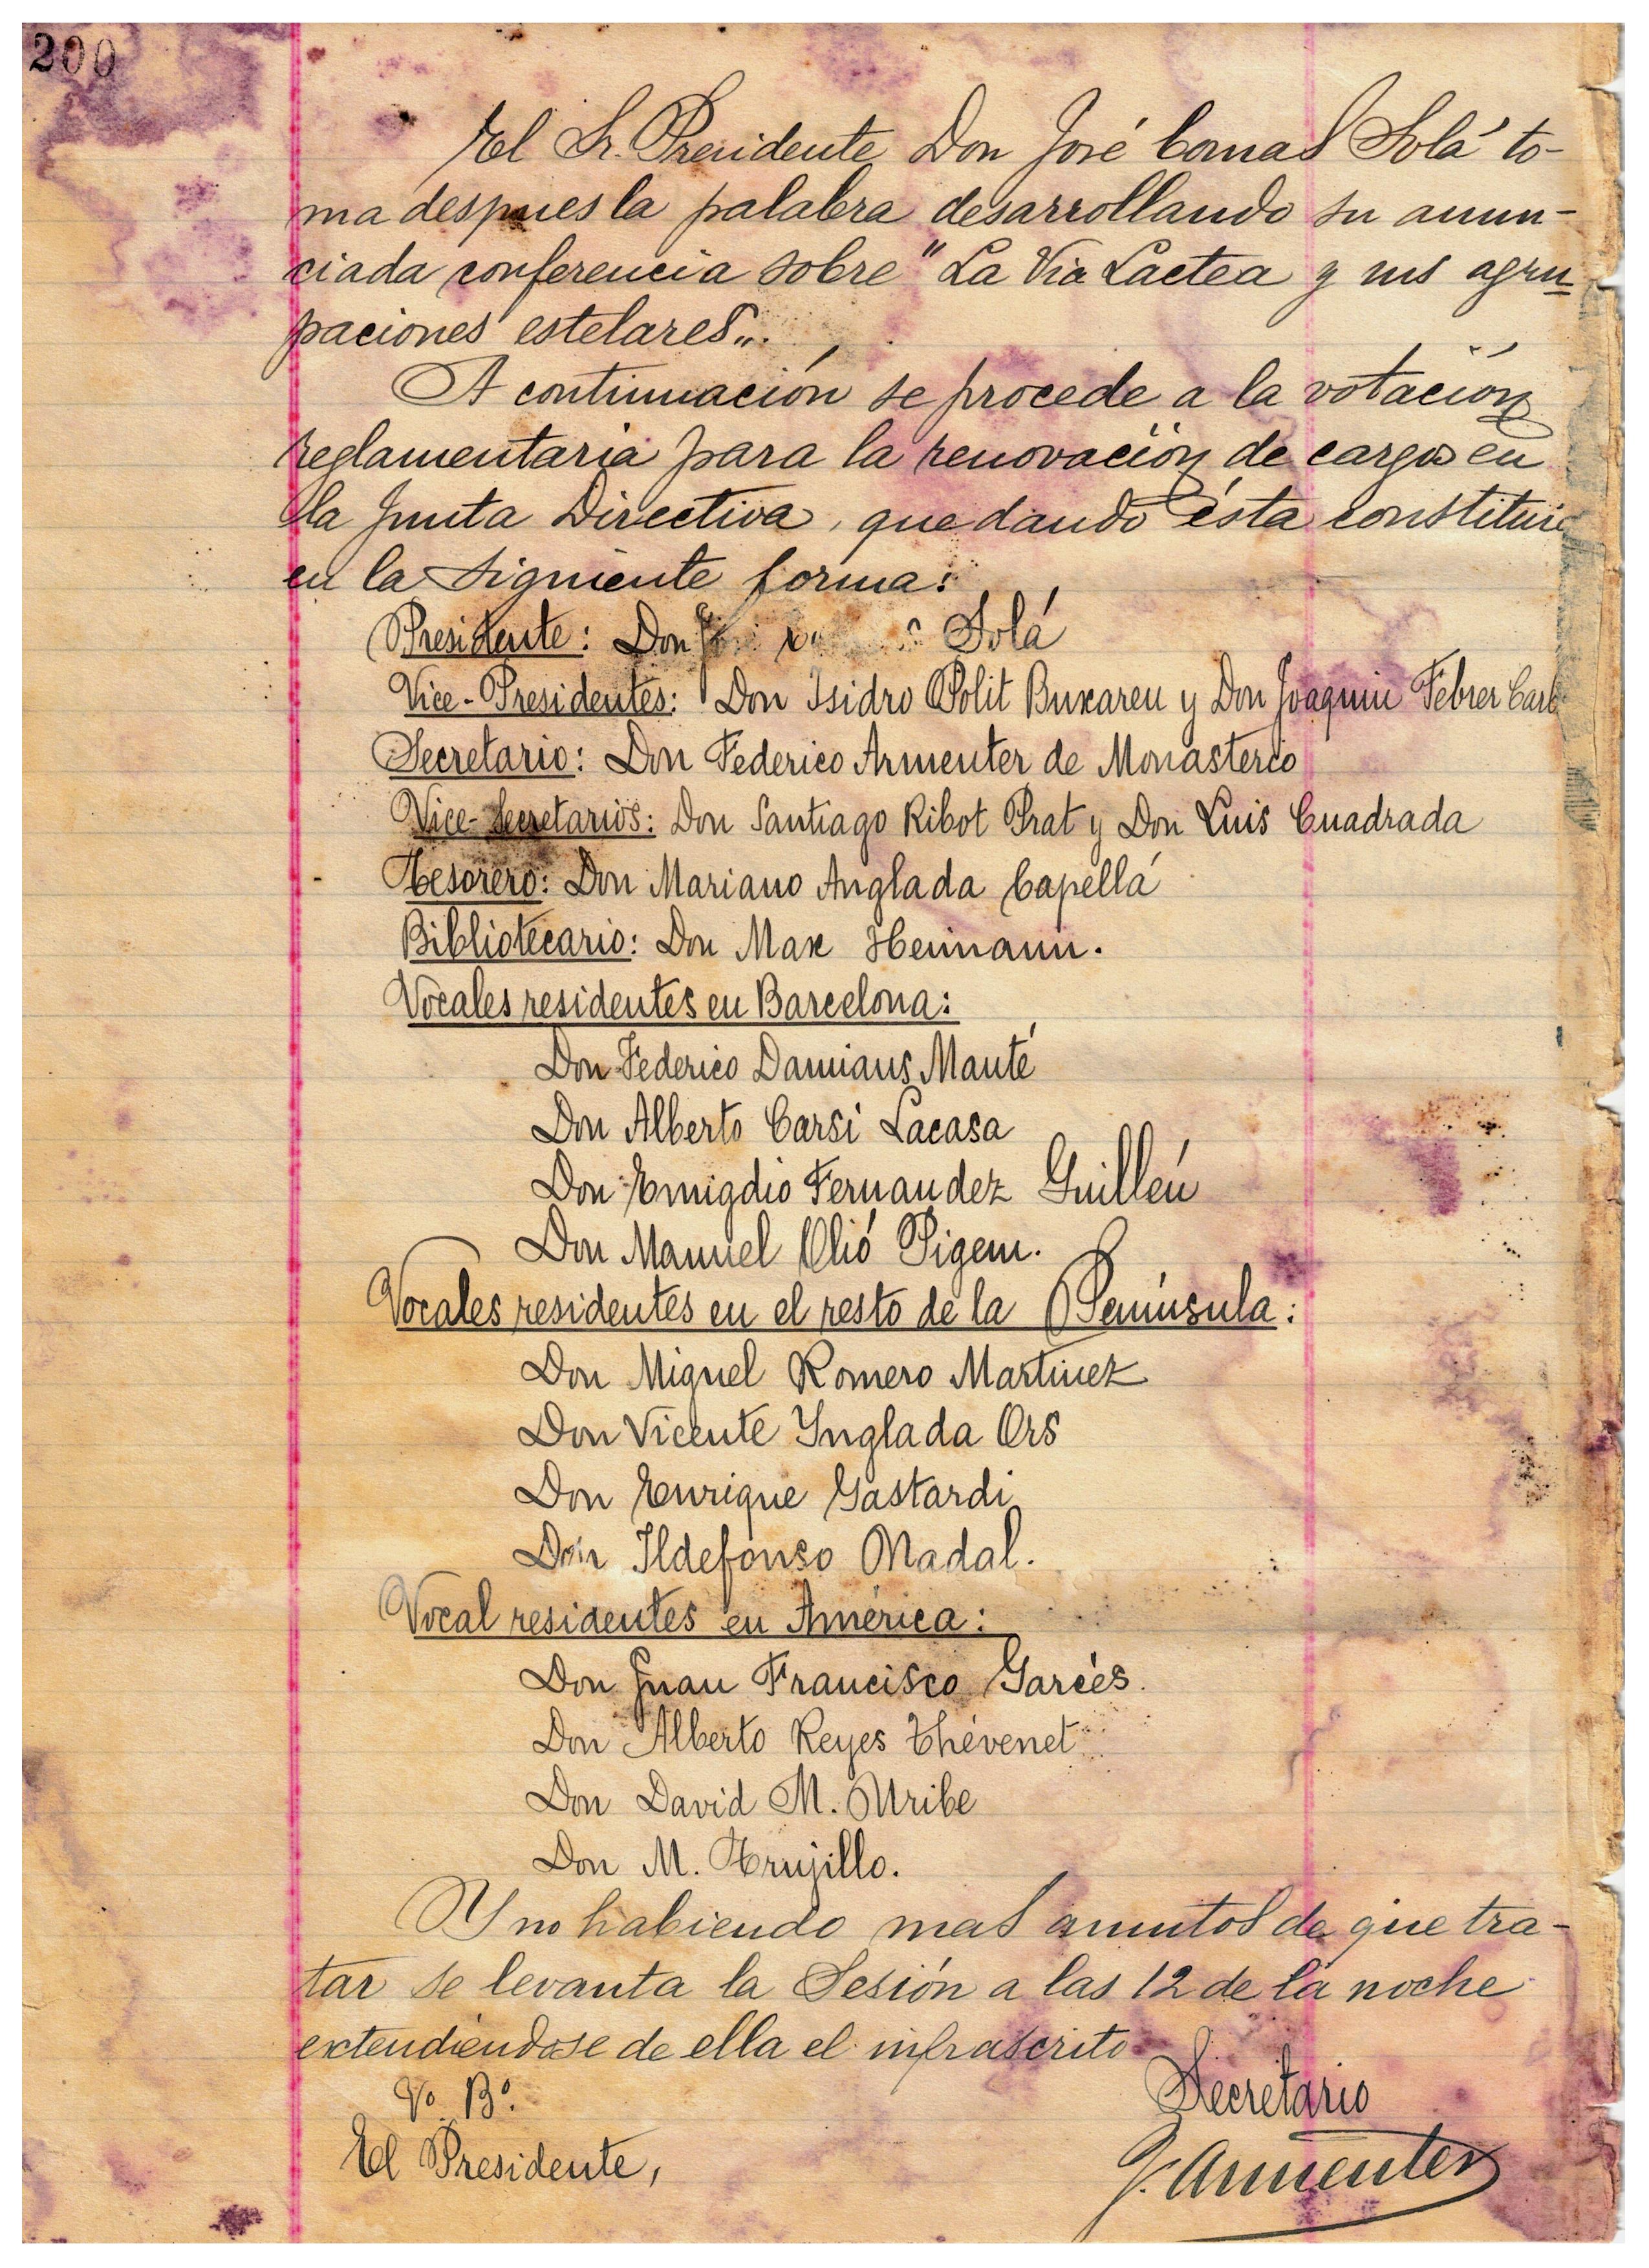 200
El Sr. Presidente Don José Comas Solá to-
ma despues la palabra desarrollando su anun-
ciada conferencia sobre "La Via Lactea y sus agru-
paciones estelares".
A continuación se procede a la votación
reglamentaria para la renovación de cargos en
la Junta Directiva, quedando ésta
en la siguiente forma:
Presidente: Don Solá
Vice-Presidentes: Don Isidro Polit Buxareu y Don Joaquin Febrer
Secretario: Don Federico Armenter de Monasterio
Vice-Secretarios: Don Santiago Ribot Prat y Don Luis Cuadrada
Tesorero: Don Mariano Anglada Capellá
Bibliotecario: Don Max Heinann.
Vocales residentes en Barcelona:
Don Federico Damians Manté
Don Alberto Carsi Lacasa
Don Emigdio Fernandez Guillén
Don Manuel Olió Pigem.
Vocales residentes en el resto de la Península:
Don Miguel Romero Martinez
Don Vicente Ynglada Ors
Don Enrique Gastardi
Don Ildefonso Nadal.
Vocal residentes en América:
Don Juan Francisco Garcés.
Don Alberto Reyes Thévenet
Don David M. Uribe
Don M. Trujillo.
Y no habiendo mas asuntos de que tra-
tar se levanta la Sesión a las 12 de la noche
extendiendose de ella el infrascrito
Secretario
Vº Bº.
El Presidente,
F. Armenter